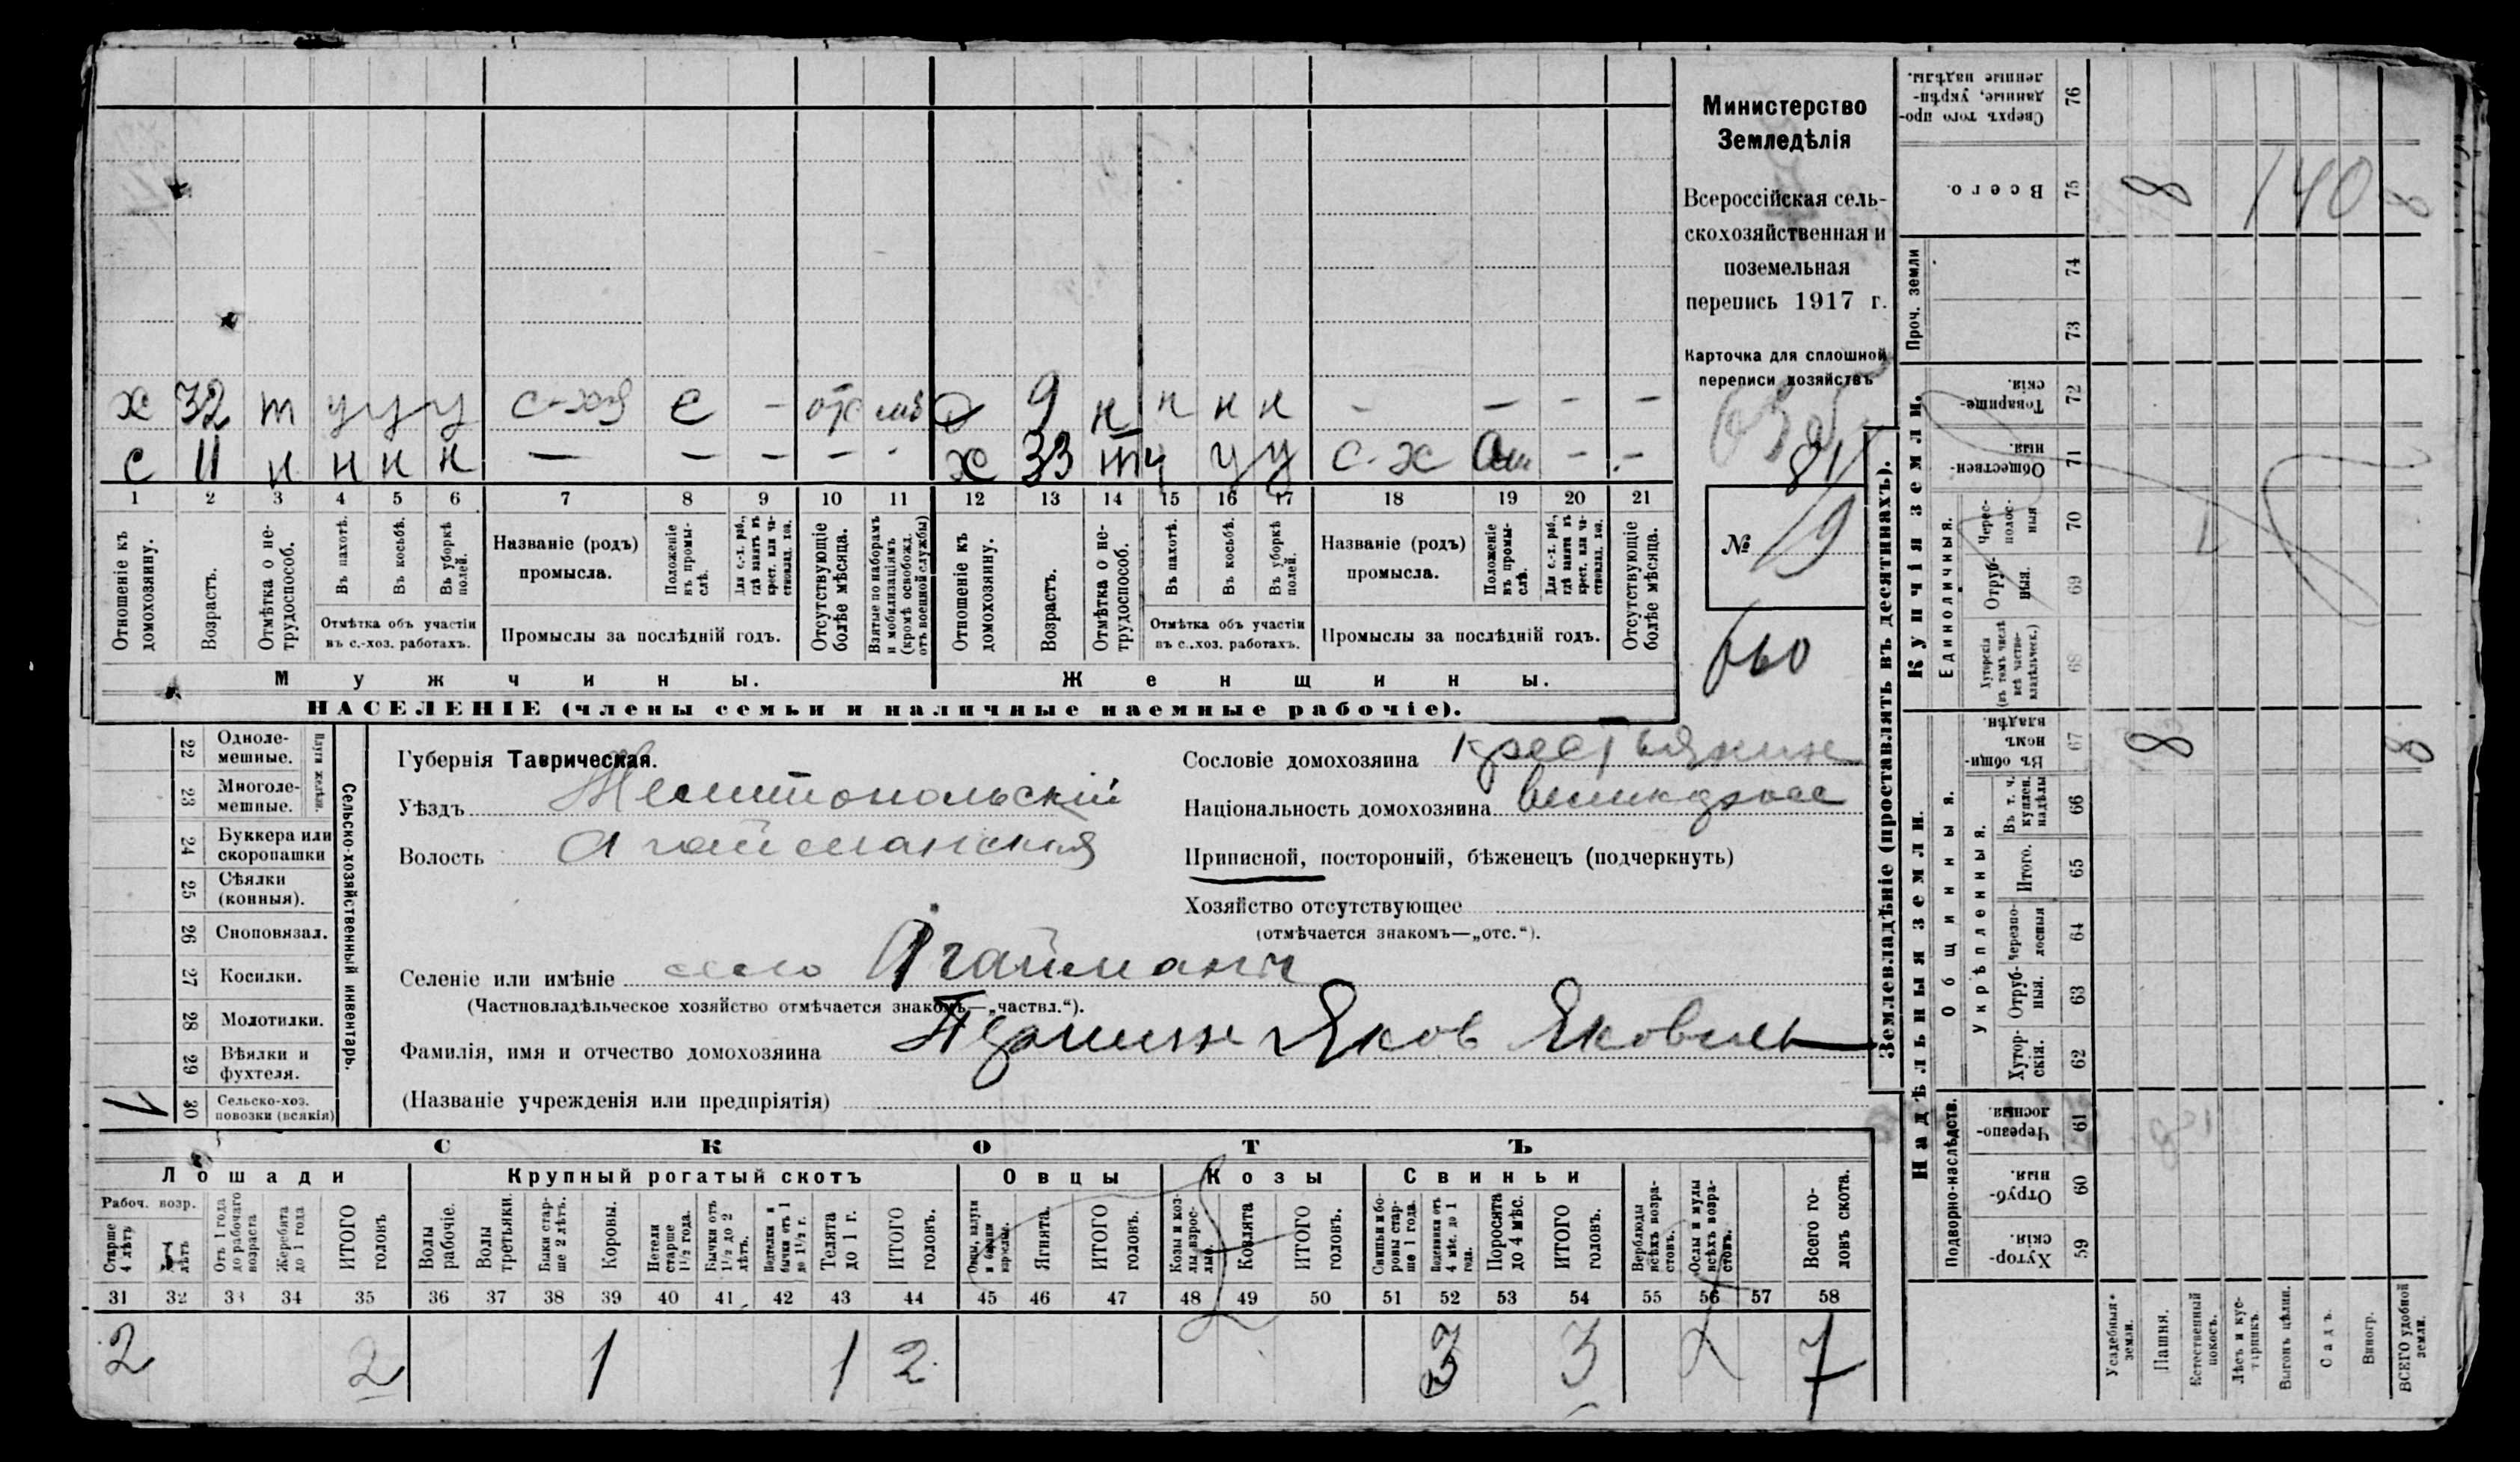 Министерство
Земледѣлія
Всероссійская сель-
скохозяйственная и
поземельная
перепись 1917 г.
Карточка для сплошной
переписи хозяйствъ
81
№ 19
660
х 32 т у у у с-хоз с - отс моб д 9 н н н н - - - -
с 11 н н н н — - - - - х 33 т у у у с-х - -
1 2 3 4 5 6 7 8 9 10 11 12 13 14 15 16 17 18 19 20 21
Отношеніе къ домохозяину.
Возрастъ.
Отмѣтка о не-трудоспособ.
Въ пахотѣ.
Въ косьбѣ.
Въ уборкѣ полей.
Отмѣтка объ участіи въ с.-хоз. работахъ.
Названіе (родъ) промысла.
Положеніе въ промы-слѣ.
Для с.-х. раб., гдѣ занятъ въ крест. или ча-стновлад. хоз.
Промыслы за послѣдній годъ.
Отсутствующіе болѣе мѣсяца.
Взятые по наборамъ и мобилизаціямъ (кромѣ освобожд. отъ военной службы)
Отношеніе къ домохозяину.
Возрастъ.
Отмѣтка о не-трудоспособ.
Въ пахотѣ.
Въ косьбѣ.
Въ уборкѣ полей.
Отмѣтка объ участіи въ с..хоз. работахъ.
Названіе (родъ) промысла.
Положеніе въ промы-слѣ.
Для с.-х. раб., гдѣ занята въ крест. или ча-стновлад. хоз.
Промыслы за послѣдній годъ.
Отсутствующіе болѣе мѣсяца.
Мужчины. Женщины.
НАСЕЛЕНІЕ (члены семьи и наличные наемные рабочіе).
22 Одноле-мешные.
23 Многоле-мешные.
Плуги желѣзн.
24 Буккера или скоропашки
25 Сѣялки (конныя).
26 Сноповязал.
27 Косилки.
28 Молотилки.
29 Вѣялки и фухтеля.
30 Сельско-хоз. повозки (всякія)
Сельско-хозяйственный инвентарь.
Губернія Таврическая.
Уѣздъ Мелитопольскій
Волость Агайманская
Селеніе или имѣніе село Агайманъ
(Частновладѣльческое хозяйство отмѣчается знакомъ—„частвл.“).
Фамилія, имя и отчество домохозяина Яков Яковлевъ
(Названіе учрежденія или предпріятія)
Сословіе домохозяина крестьянинъ
Національность домохозяина великоросс
Приписной, посторонній, бѣженецъ (подчеркнуть)
Хозяйство отсутствующее
(отмѣчается знакомъ—„отс.“).
СКОТЪ
Лошади Крупный рогатый скотъ Овцы Козы Свиньи
Рабоч. возр.
Старше 4 лѣтъ
Отъ 1 года до рабочаго возраста
Жеребята до 1 года
ИТОГО головъ
Волы рабочіе.
Волы третьяки.
Быки стар-ше 2 лѣтъ.
Коровы.
Нетели старше 1½ года.
Бычки отъ 1½ до 2 лѣтъ.
Подтелки и бычки отъ 1 до 1½ г.
Телята до 1 г.
ИТОГО головъ.
Овцы, валухи и бараны взрослые.
Ягнята.
ИТОГО головъ.
Козы и коз-лы взрос-лые.
Козлята
ИТОГО головъ.
Свиньи и бо-ровы стар-ше 1 года.
Подсвинки отъ 4 мѣс. до 1 года.
Поросята до 4 мѣс.
ИТОГО головъ.
Верблюды всѣхъ возра-стовъ.
Ослы и мулы всѣхъ возра-стовъ.
Всего го-ловъ скота.
31 32 33 34 35 36 37 38 39 40 41 42 43 44 45 46 47 48 49 50 51 52 53 54 55 56 57 58
2 2 1 1 2 3 3 7
Землевладѣніе (проставлять въ десятинахъ).
Надѣльныя земли. Купчія земли. Проч. земли
Подворно-наслѣдств.
Общинныя.
Укрѣпленныя.
Единоличныя.
Хутор-скія. 59
Отруб-ныя. 60
Черезпо-лосныя. 61
Хутор-скія. 62
Отруб-ныя. 63
Черезпо-лосныя 64
Итого. 65
Въ т. ч. куплен. надѣлы 66
Въ общи-номъ владѣн. 67
Хуторскія (въ томъ числѣ всѣ частно-владѣльческ.) 68
Отруб-ныя. 69
Черес-полос-ныя 70
Обществен-ныя. 71
Товарище-скія. 72
73
74
Всего. 75
Сверхъ того про-данные, укрѣп-ленные надѣлы. 76
8 8
8 140 8
Усадебныя земли.
Пашня.
Естественный покосъ.
Лѣсъ и кус-тарникъ.
Выгонъ цѣлин.
Садъ.
Виногр.
ВСЕГО удобной земли.